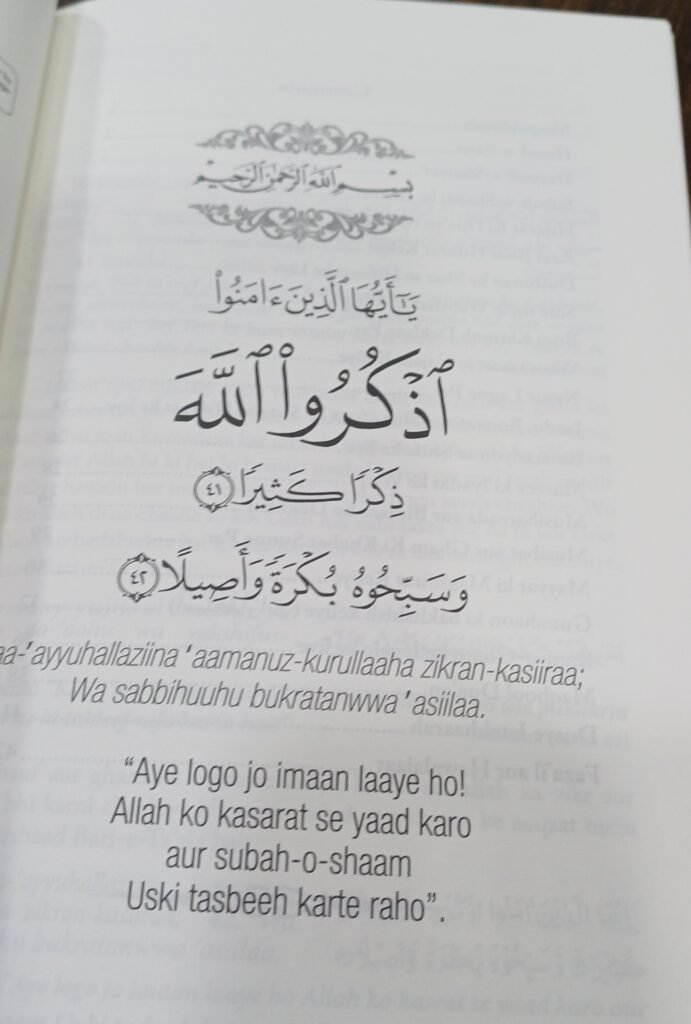 بِسْمِ ٱللَّهِ ٱلرَّحْمَٰنِ ٱلرَّحِيمِ
يَـٰٓأَيُّهَا ٱلَّذِينَ ءَامَنُوا۟
ٱذْكُرُوا۟ ٱللَّهَ
ذِكْرًا كَثِيرًا ٤١
وَسَبِّحُوهُ بُكْرَةً وَأَصِيلًا ٤٢
aa-'ayyuhallaziina 'aamanuz-kurullaaha zikran-kasiiraa;
Wa sabbihuuhu bukratanwwa 'asiilaa.
“Aye logo jo imaan laaye ho!
Allah ko kasarat se yaad karo
aur subah-o-shaam
Uski tasbeeh karte raho”.